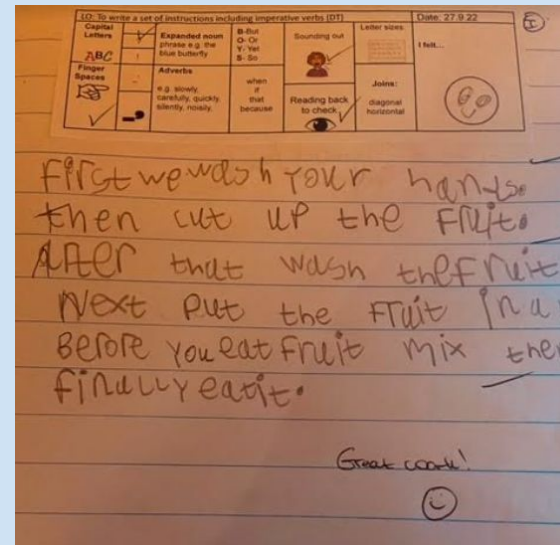 LO: To write a set of instructions including imperative verbs (DT)
Date: 27.9.22
I
Capital Letters
ABC
Finger Spaces
Expanded noun phrase e.g. the blue butterfly
Adverbs
e.g. slowly, carefully, quickly, silently, noisily.
B-But
O- Or
Y- Yet
S- So
when
if
that
because
Sounding out
Reading back to check
Letter sizes
Joins:
diagonal
horizontal
I felt...
First we wash your hands.
then cut up the fruit.
After that wash the fruit
Next put the fruit in a
Before you eat fruit mix then
finally eat it.
Great work!